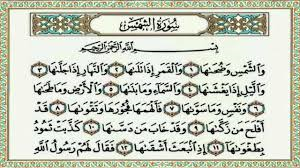 سُورَةُ الشَّمْسِ
بِسْمِ اللَّهِ الرَّحْمَٰنِ الرَّحِيمِ
وَالشَّمْسِ وَضُحَىٰهَا ١ وَالْقَمَرِ إِذَا تَلَىٰهَا ٢ وَالنَّهَارِ إِذَا جَلَّىٰهَا ٣
وَالَّيْلِ إِذَا يَغْشَىٰهَا ٤ وَالسَّمَآءِ وَمَا بَنَىٰهَا ٥ وَالْأَرْضِ وَمَا طَحَىٰهَا ٦
وَنَفْسٍ وَمَا سَوَّىٰهَا ٧ فَأَلْهَمَهَا فُجُورَهَا وَتَقْوَىٰهَا ٨ قَدْ
أَفْلَحَ مَن زَكَّىٰهَا ٩ وَقَدْ خَابَ مَن دَسَّىٰهَا ١٠ كَذَّبَتْ ثَمُودُ
بِطَغْوَىٰهَآ ١١ إِذِ انۢبَعَثَ أَشْقَىٰهَا ١٢ فَقَالَ لَهُمْ رَسُولُ اللَّهِ